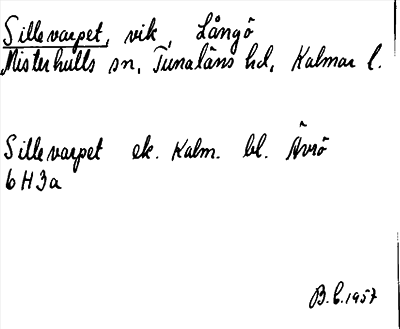 Sillevarpet, vik, Långö
Misterhults sn, Tunaläns hd, Kalmar l.
Sillevarpet ek. Kalm. bl. Ävrö
6H3a
B.C.1957